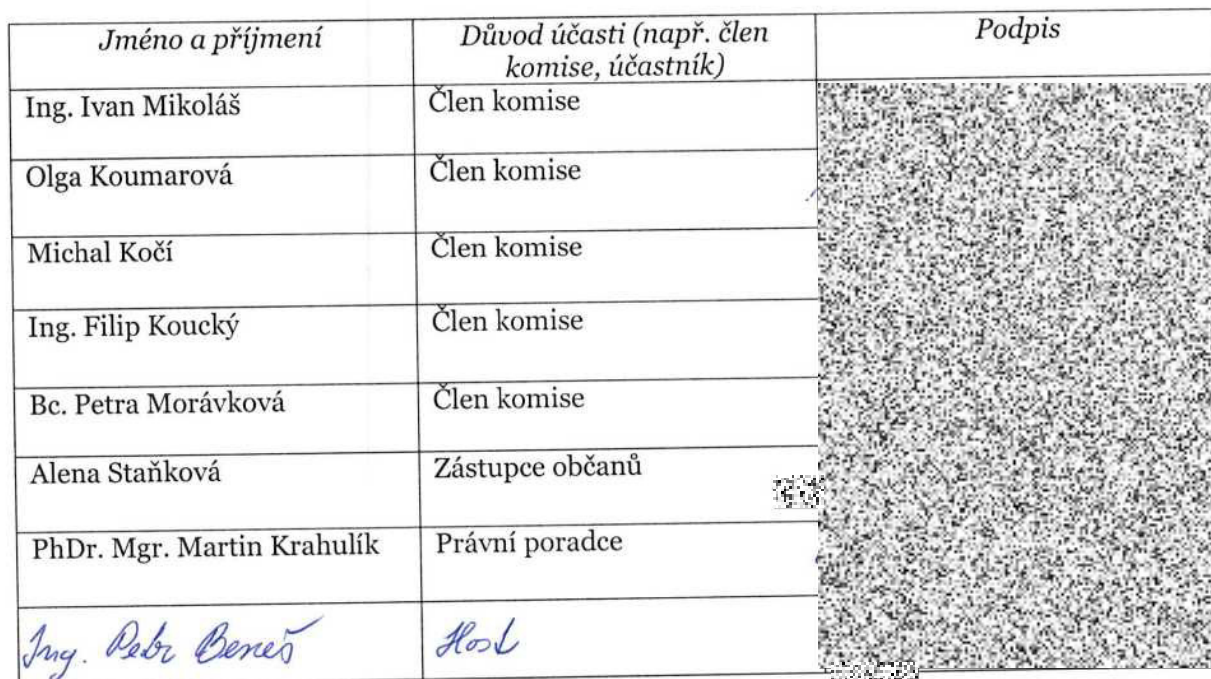 Jméno a příjmení
Důvod účasti (např. člen
komise, účastník)
Podpis
Ing. Ivan Mikoláš
Člen komise
Olga Koumarová
Člen komise
Michal Kočí
Člen komise
Ing. Filip Koucký
Člen komise
Bc. Petra Morávková
Člen komise
Alena Staňková
Zástupce občanů
PhDr. Mgr. Martin Krahulík
Právní poradce
Ing. Petr Beneš
Host